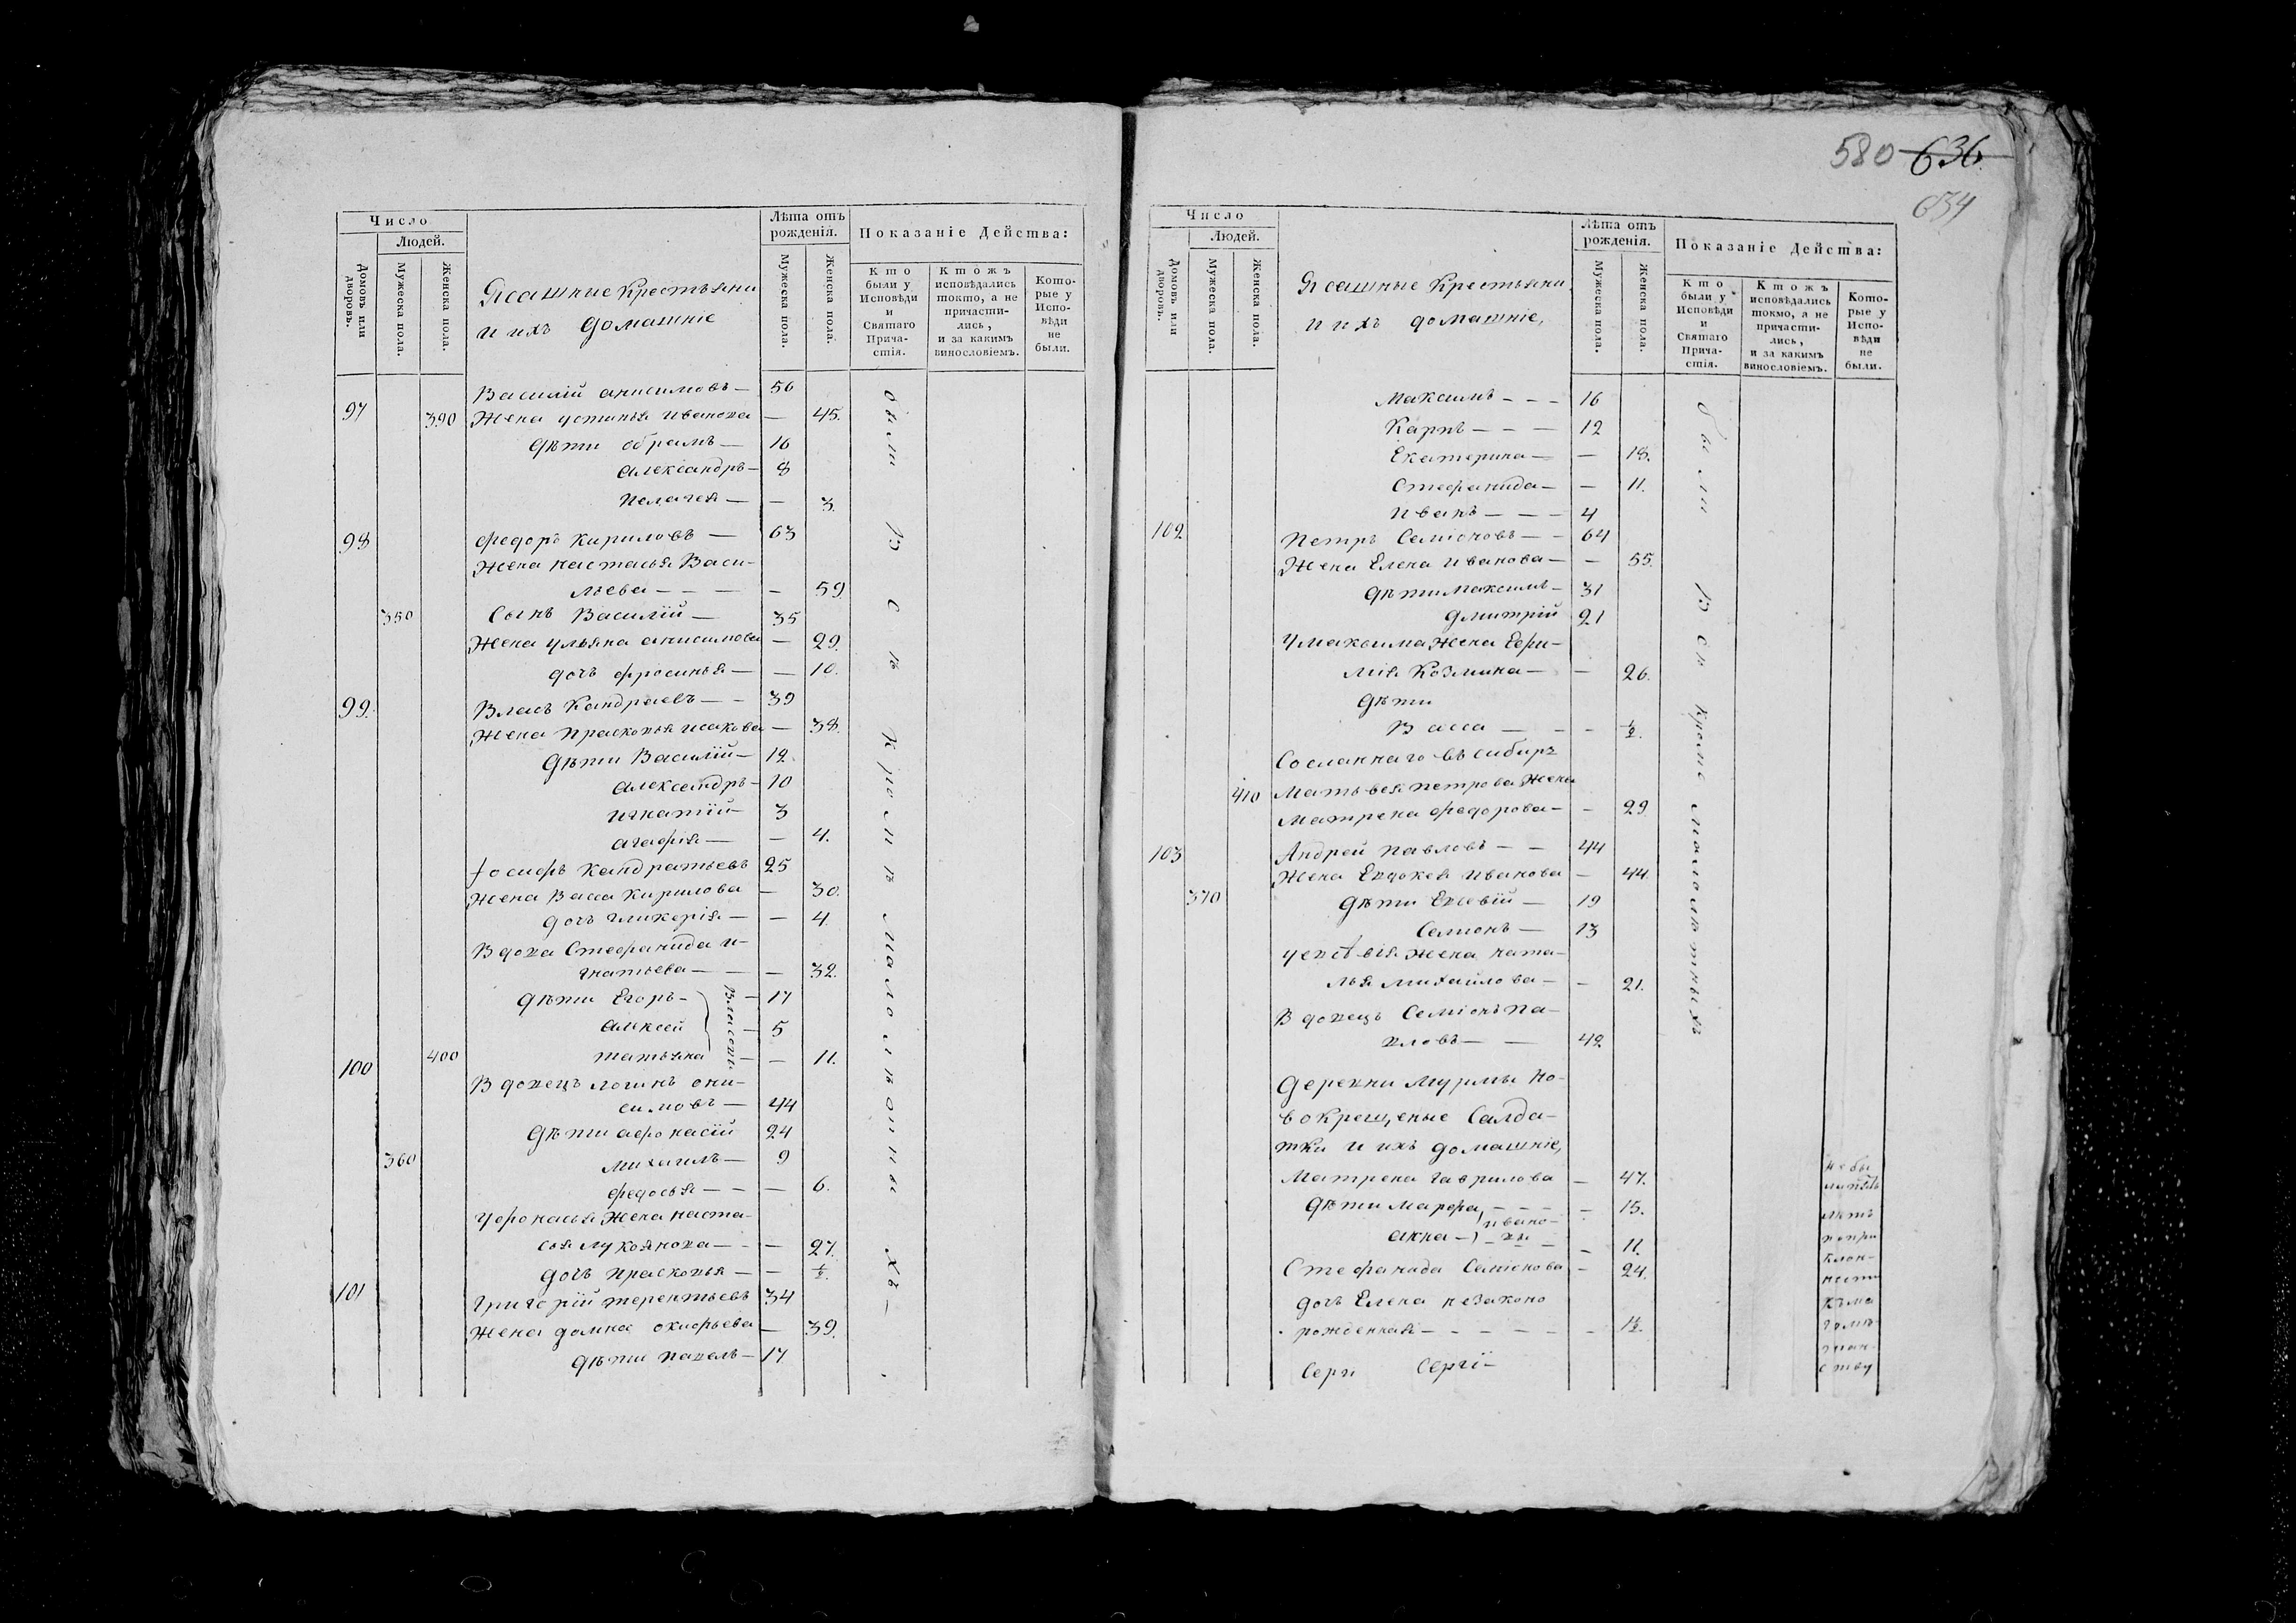 Число
Людей.
Домовъ или дворовъ.
Мужеска пола.
Женска пола.
Ясашные Крестьяни
и ихъ домашніе
Лѣта отъ рожденія.
Мужеска пола.
Женска пола.
Показаніе Действа:
Кто были у Исповѣди и Святаго Прича-стія.
Ктожъ исповѣдались токмо, а не причасти-лись, и за какимъ винословіемъ.
Кото-рые у Испо-вѣди не были.
Василій анисимовъ — 56
97 390 Жена устинья иванова — 45.
дѣти обрамъ — 16
александръ — 8
пелагея — — 3.
98 федоръ кириловъ — 63
Жена настасья Васи-
льева — — — — 59.
350 Сынъ Василій — 35
Жена ульяна анисимова — 29.
дочь фросинья — — 10.
99. Власъ Кандраевъ — — 39
Жена прасковья исакова — 38.
дѣти Василій — 12.
александръ — 10
игнатій — 3
агафія — — 4.
Іосифъ Кандратьевъ 25
Жена Васса Кирилова — 30.
дочь гликерія — — 4.
Вдова Стефанида и-
гнатьева — — — 32.
дѣти Егоръ — 17
алексей — 5
100 400 татьяна — — 11.
Вдовецъ логинъ они-
симовъ — 44
дѣти афонасій 24
360 михаилъ — 9
федосья — — — 6.
Уафонасья Жена наста-
сья лукоянова — — — 27.
дочь прасковья — — 1/2.
101 григорій терентьевъ 34
Жена домна окифьева — 39.
дѣти павелъ — 17.
были
Всѣ
Кромѣ
малолѣтны
хъ —
580 636.
634
Число
Людей.
Домовъ или дворовъ.
Мужеска пола.
Женска пола.
Ясашные Крестьяни
и ихъ домашніе,
Лѣта отъ рожденія.
Мужеска пола.
Женска пола.
Показаніе Действа:
Кто были у Исповѣди и Святаго Прича-стія.
Ктожъ исповѣдались токмо, а не причасти-лись, и за какимъ винословіемъ.
Кото-рые у Испо-вѣди не были.
Максимъ — — — 16
Карпъ — — — 12
Екатерина — — 18.
Стефанида — — 11.
Иванъ — — — 4
102 Петръ Семіоновъ — — 64
Жена Елена иванова — — 55.
дѣти Максимъ — 31
дмитрій 21
Умаксима Жена Ефи-
мія Козмина — — 26.
дѣти
Васса — — — 1/2.
Сосланнаго въ сибирь
410 Матьвея петрова Жена
Матрена федорова — — 29
103 Андрей павловъ — — 44
Жена Евдокея иванова — 44.
370 дѣти Евсевій — 19
Семионъ — 13
уевсѣвія Жена ната-
лья михайлова — — 21.
Вдовецъ Семіонъ па-
вловъ — — 42
деревни мурмы но-
вокрещеные Салда-
тки и ихъ домашніе,
Матрена гаврилова — 47.
дѣти марфа, — — — — 15.
анна — — — 11.
ивано-
вы
Стефанида Семіонова — 24.
дочь Елена незаконо
рожденная — — — — — 1/2.
Серги Сергі—
были
Всѣ
Кроме
малолѣтныхъ
небы
ли
лѣтъ
попри
клон-
ности
къма
гоме-
тан-
ству